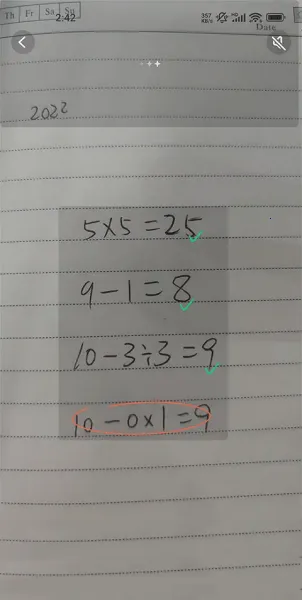 Th Fr Sa Su
2:42
357 KB/s
Date
2022
5×5=25
9-1=8
10-3÷3=9
10-0×1=9